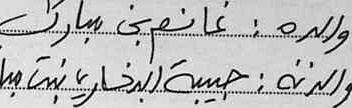 والده : غانم بن مبارك
والدته : حبيبة البخاري بنت مبا